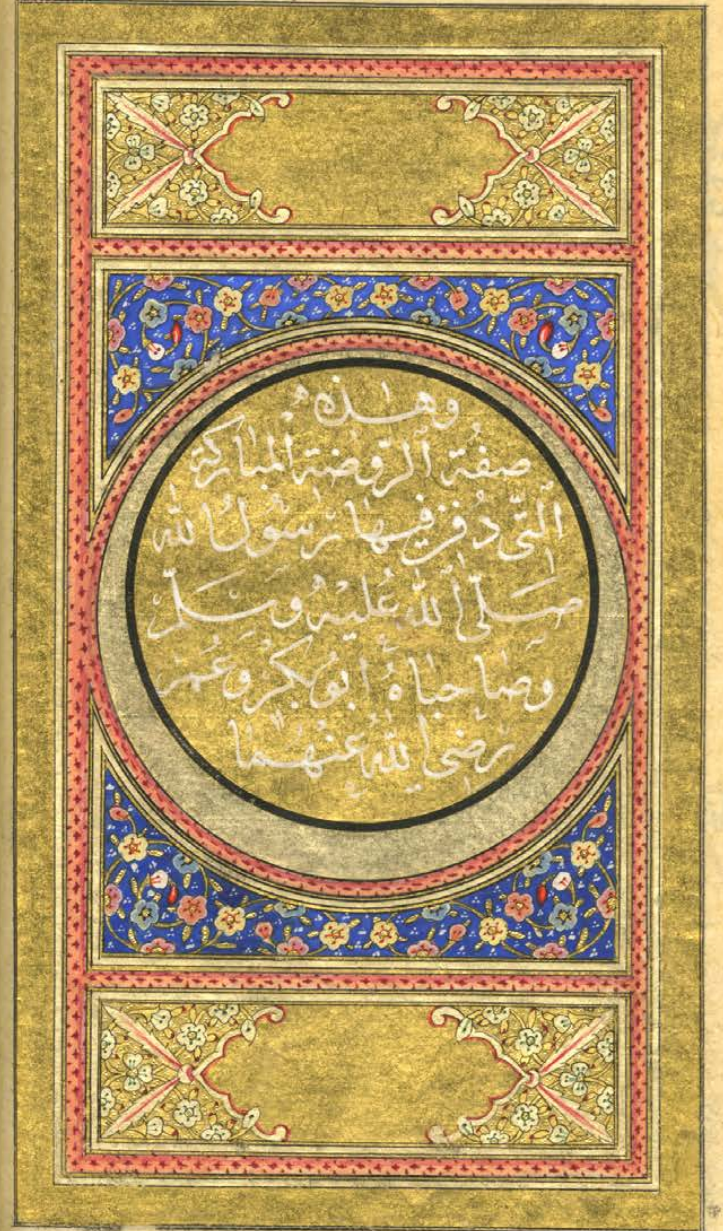 وهذه
صفة الروضة المباركة
الَّتي دُفن فيها رَسُولُ الله
صلّى الله عليه وسلّم
وصاحباهُ أبو بكر وعمر
رضي الله عنهما